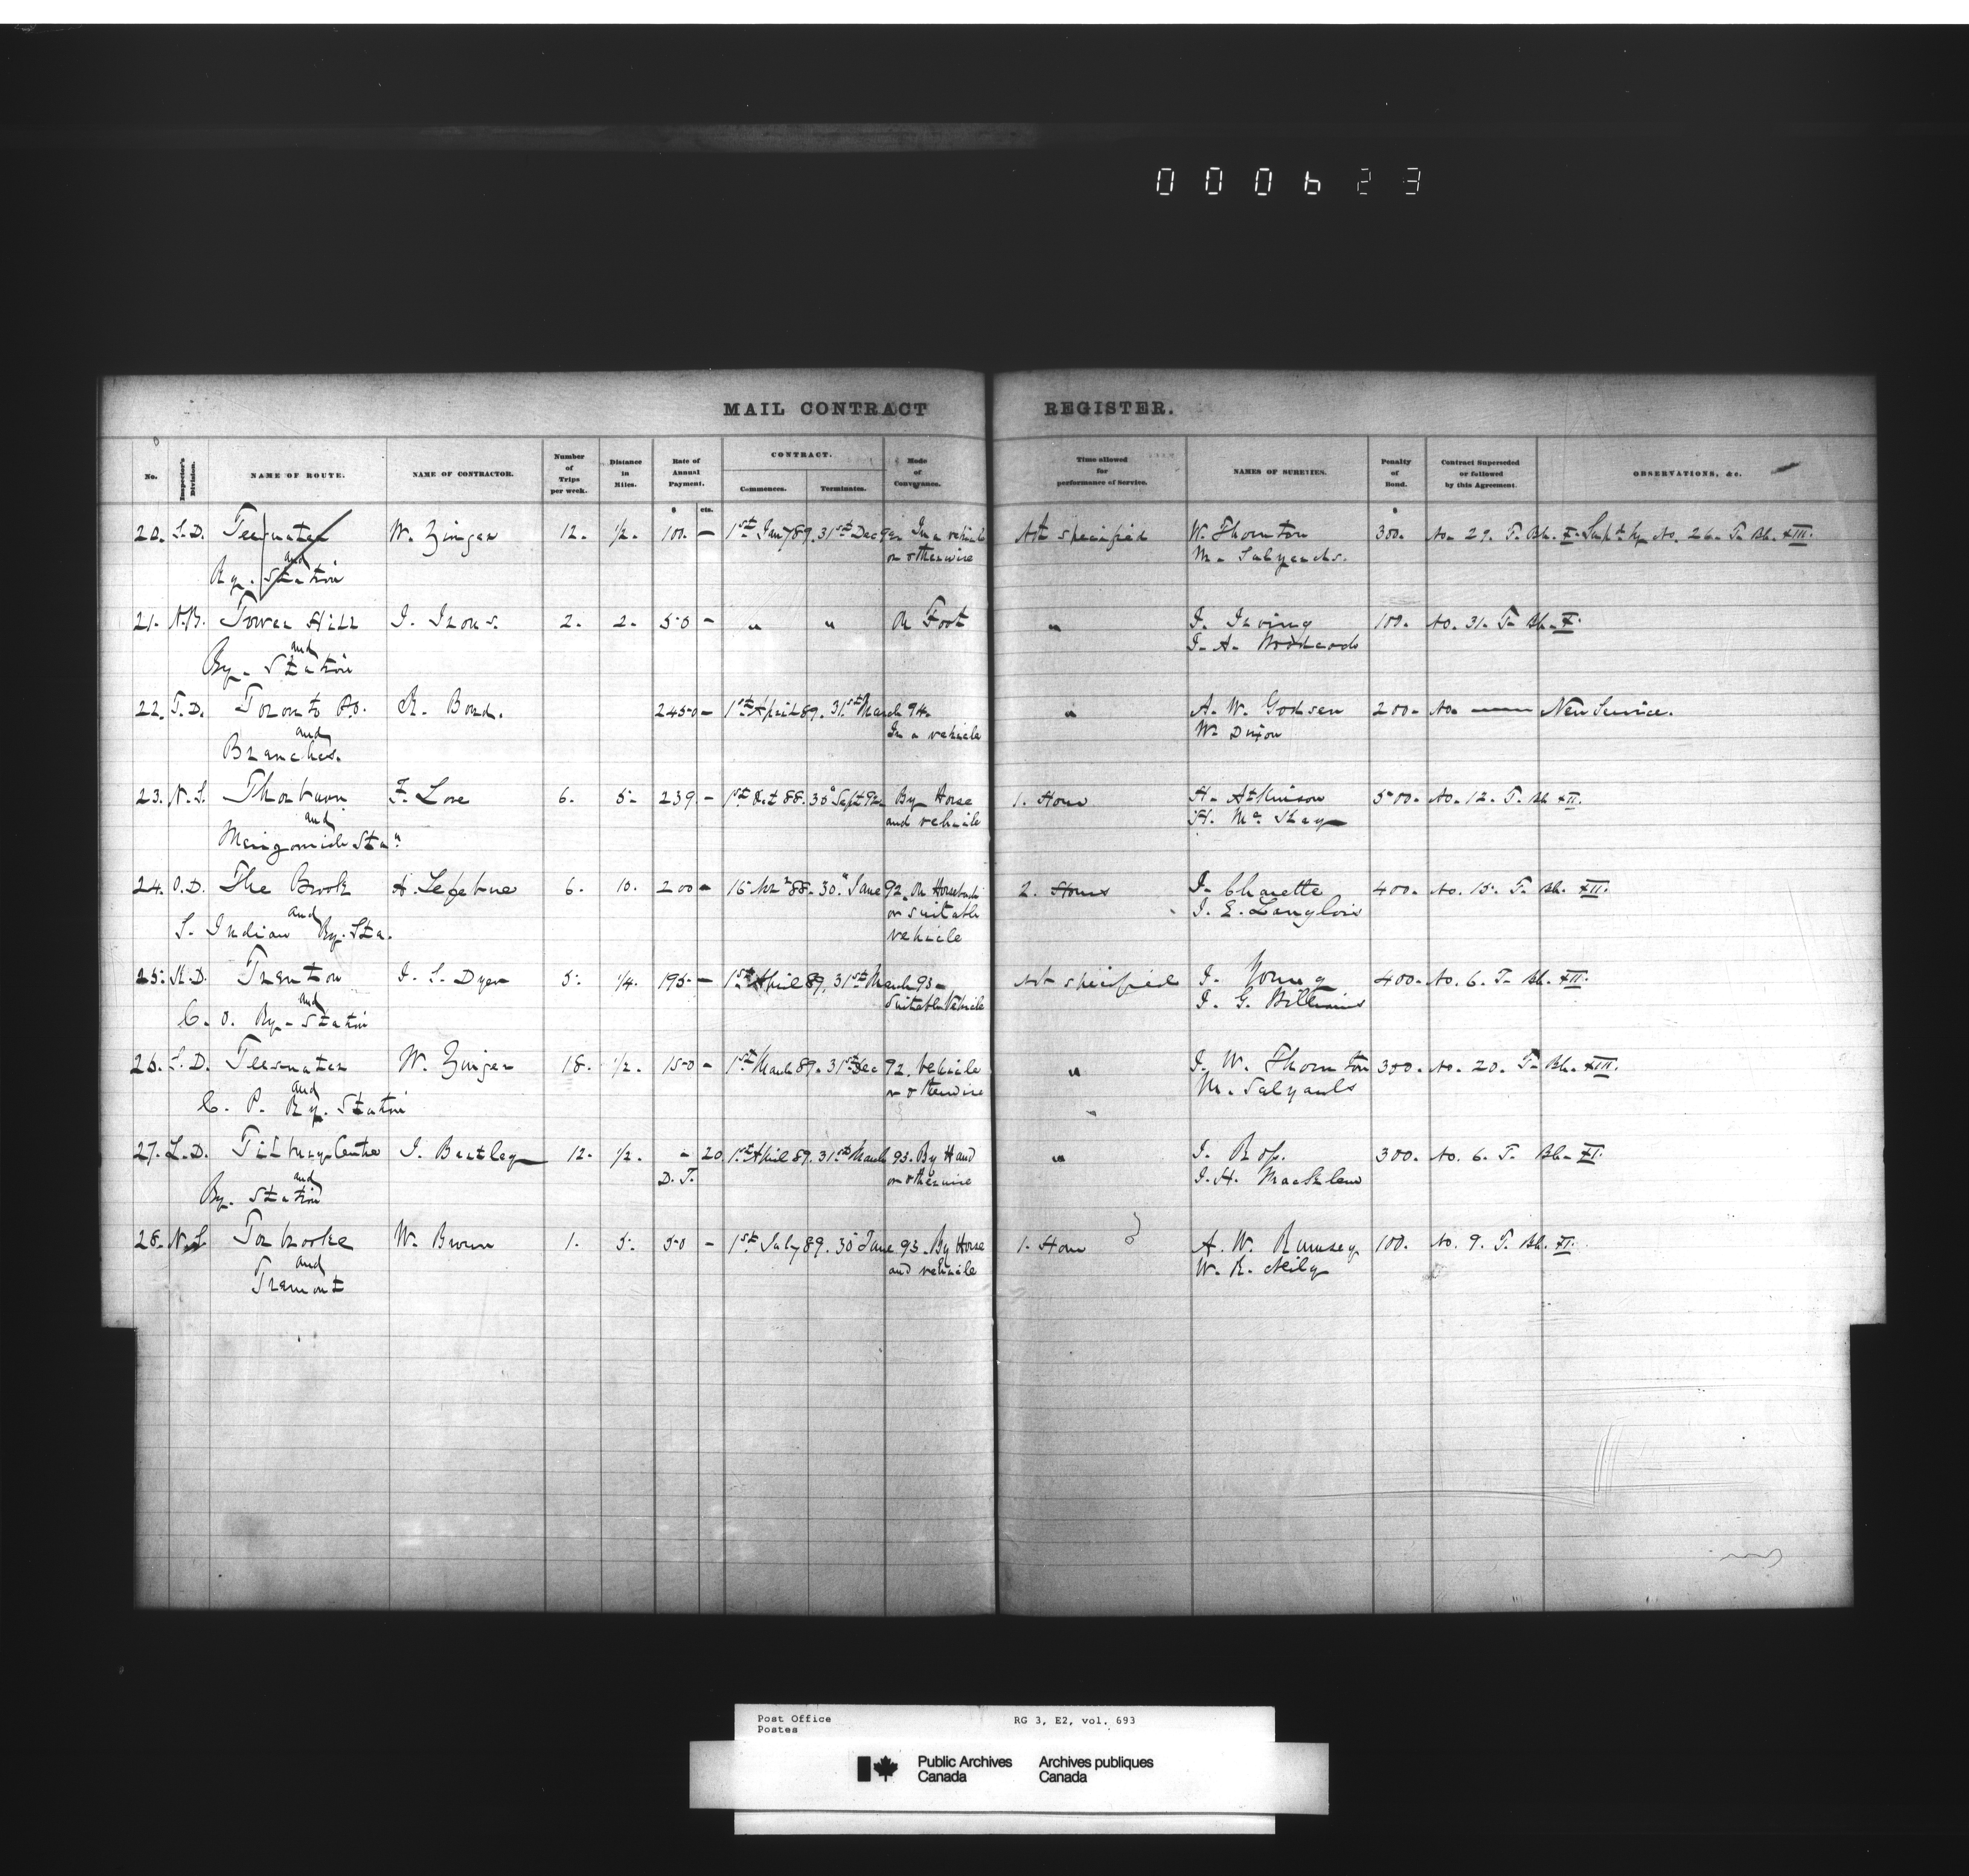 000623
MAIL CONTRACT REGISTER.
No. Inspector's Division. NAME OF ROUTE. NAME OF CONTRACTOR. Number of Trips per week. Distance in Miles. Rate of Annual Payment. CONTRACT. Commences. Terminates. Mode of Conveyance. Time allowed for performance of Service. NAMES OF SURETIES. Penalty of Bond. Contract Superseded or followed by this Agreement. OBSERVATIONS, &c.
$ cts. $
20. S.D. Teeswater W. Zinger 12. 1/2. 100. — 1st Jany 89. 31st Dec 92 In a vehicle Not specified W. Thornton 300. No. 29. T. Bk. X. Supd by No. 26. T. Bk. XIII.
and or otherwise
Ry. Station
21. N.B. Tower Hill J. Irons. 2. 2. 50 - " " On Foot " J. Irving 100. No. 31. T. Bk. X.
and J. A.
Ry. Station
22. T.D. Toronto P.O. R. Bond. 2450 - 1st April 89. 31st March 94. " A. W. Godson 200. No. — New Service.
and In a vehicle Wm Dixon
Branches.
23. N.S. Thorburn F. Lore 6. 5. 239 - 1st Oct 88. 30" Sept 92 By Horse 1. Hour H. Atkinson 500. No. 12. T. Bk. XII.
and and vehicle H. McKay
Merigomish Stan
24. O.D. The Brook A. Lefebvre 6. 10. 200 - 16 Nov 88. 30" June 92 On Horseback 2. Hours J. Charette 400. No. 15. T. Bk. XII.
and or suitable J. E. Langlois
S. Indian Ry. Sta. vehicle
25. K.D. Trenton J. S. Dyer 5. 1/4. 195 - 1st April 89. 31st March 93 - Not specified J. Young 400. No. 6. T. Bk. XII.
and Suitable Vehicle J. G.
C. O. Ry. Station
26. S.D. Teeswater W. Zinger 18. 1/2. 150 - 1st March 89. 31st Dec 92. Vehicle " J. W. Thornton 300. No. 20. T. Bk. XIII.
and or otherwise M.
C. P. Ry. Station
27. L.D. Tilbury Centre J. Bartley 12. 1/2. - 20 1st April 89. 31st March 93. By Hand " J. 300. No. 6. T. Bk. XI.
and D. T. or otherwise J. H.
Ry. Station
28. N.S. Torbrooke W. Brown 1. 5. 50 - 1st July 89. 30" June 93. By Horse 1. Hour A. W. Rumsey 100. No. 9. T. Bk. XI.
and and vehicle W. R. Neily
Tremont
Post Office RG 3, E2, vol. 693
Postes
Public Archives Archives publiques
Canada Canada